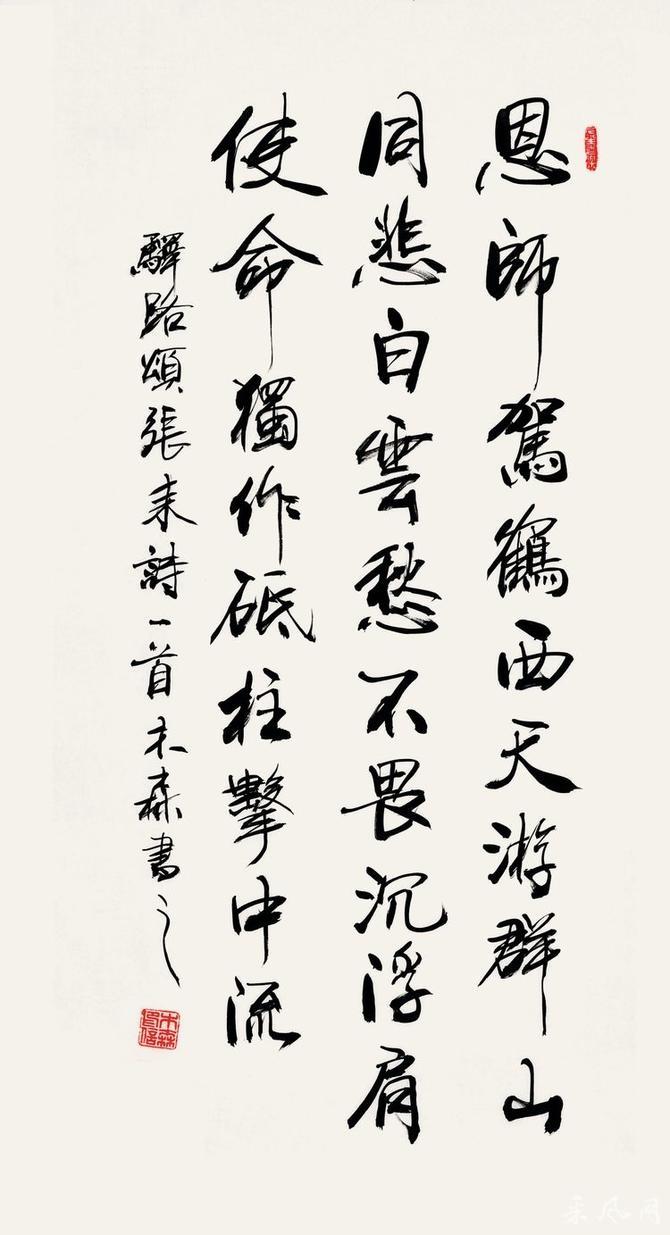 恩師駕鶴西天游群山
同悲白雲愁不畏沉浮肩
使命獨作砥柱擊中流
驛路頌張耒詩一首木森書之
采风网